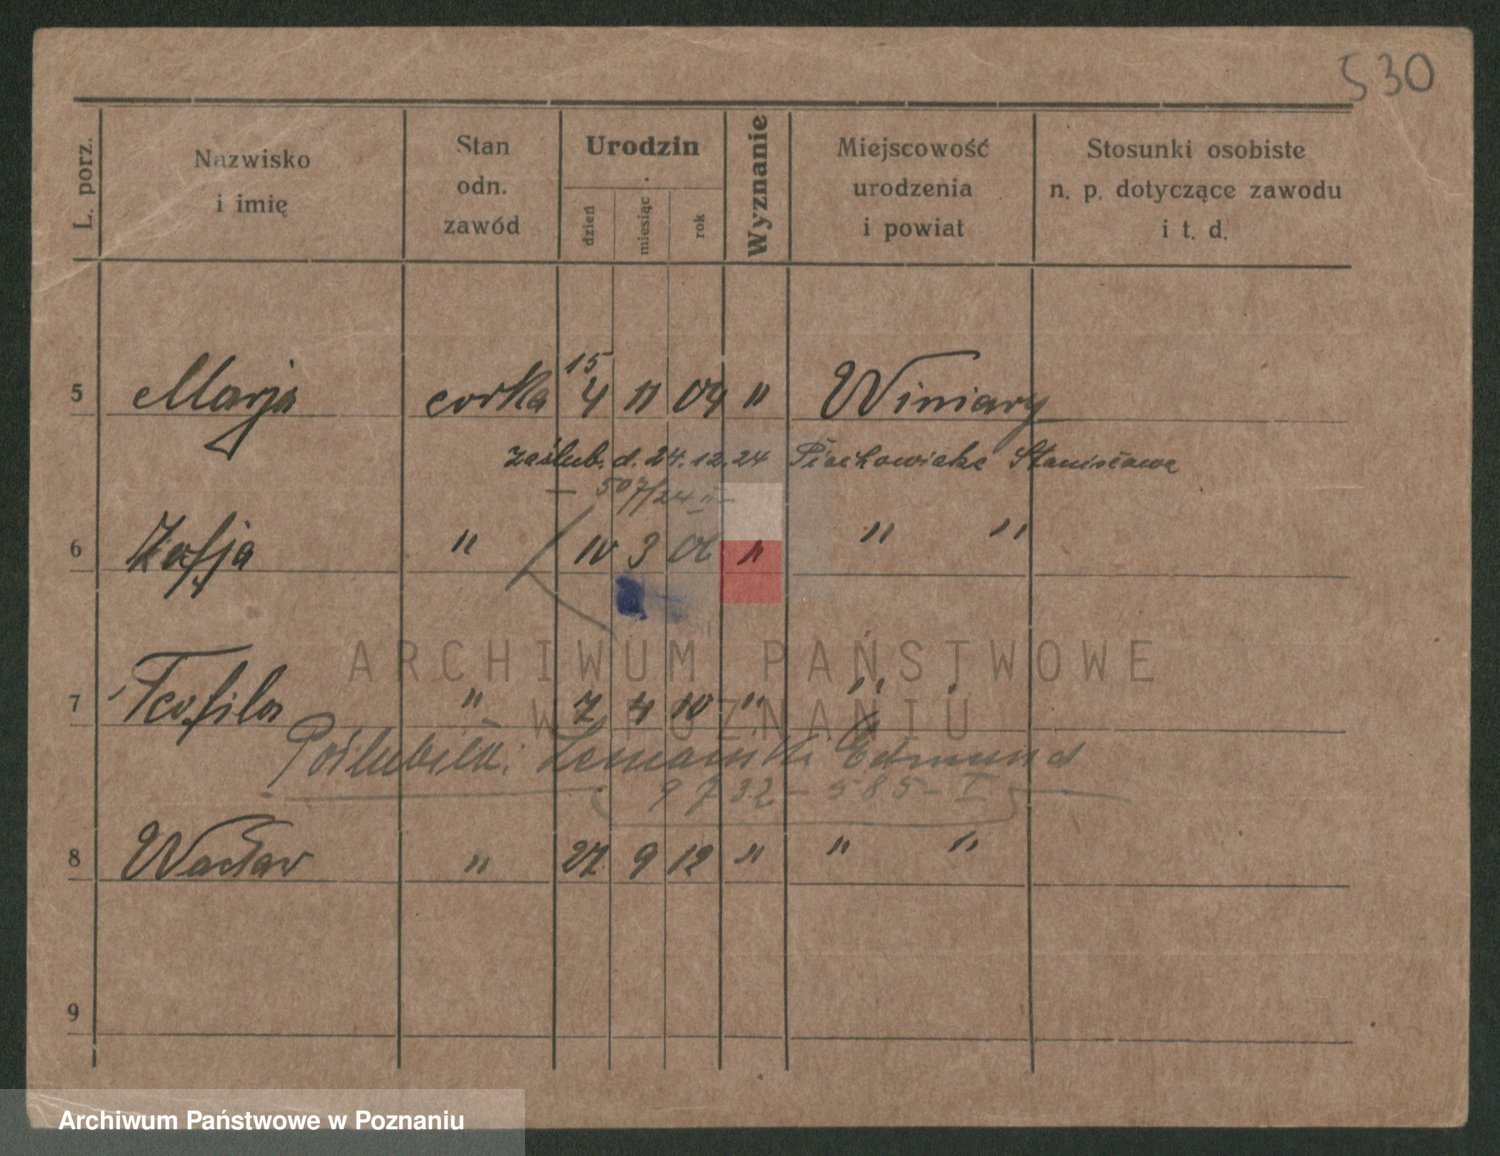 530
L. porz.
Nazwisko
i imię
Stan
odn.
zawód
Urodzin
dzień
miesiąc
rok
Wyznanie
Miejscowość
urodzenia
i powiat
Stosunki osobiste
n. p. dotyczące zawodu
i t. d.
15
5 Marja corka 4 11 04 " Winiary
zaślub. d. 24.12.24 Stanisława
— 507/24 II —
6 Zofja " 10 3 06 " " "
ARCHIWUM PAŃSTWOWE
7 Teofila " 7 4 10 " " "
W POZNANIU
Poślubiła: Edmund
9732 - 585 - I
8 Wacław " 27 9 12 " " "
9
Archiwum Państwowe w Poznaniu